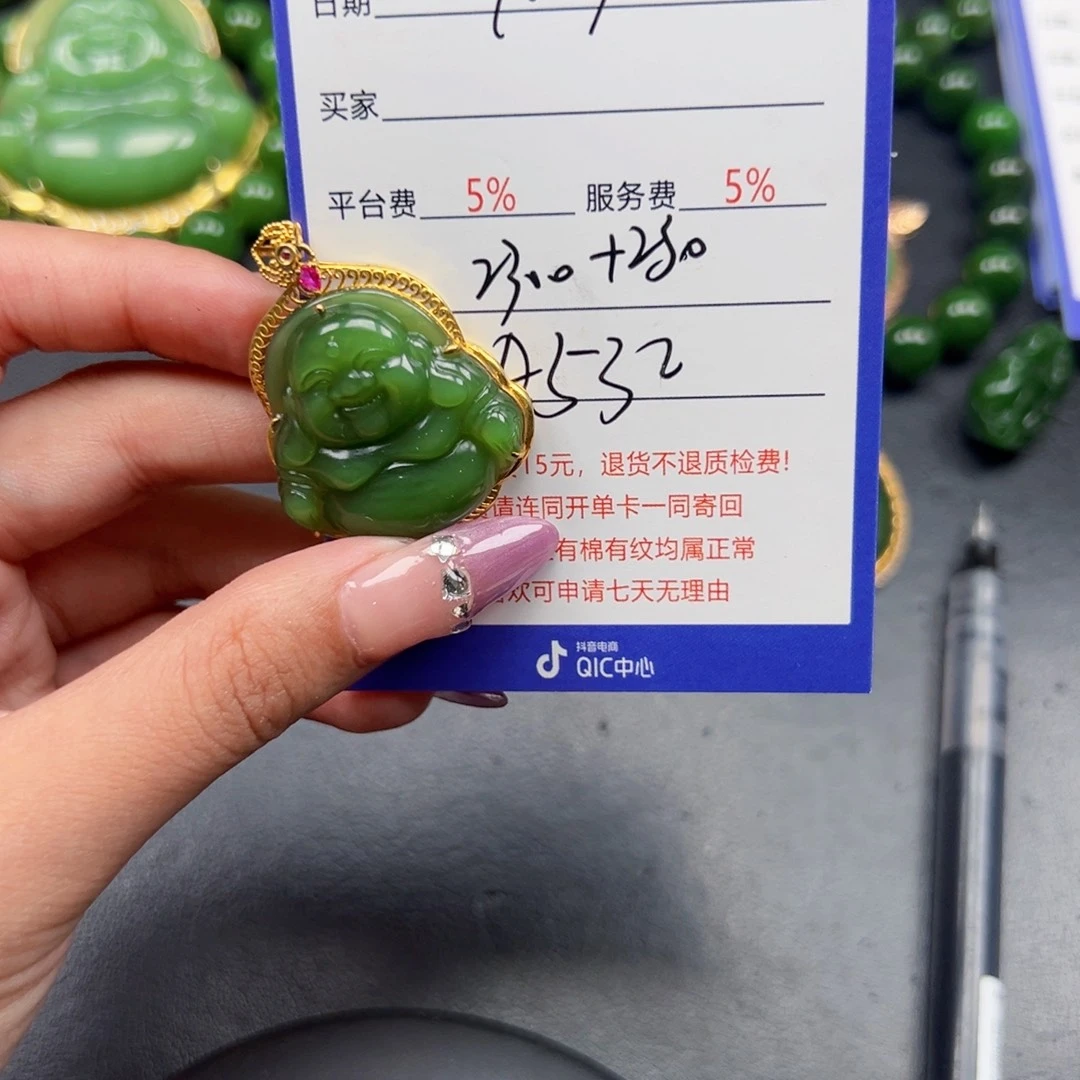 日期
买家
平台费 5% 服务费 5%
2310+250
A532
15元，退货不退质检费！
请连同开单卡一同寄回
有棉有纹均属正常
欢可申请七天无理由
抖音电商
QIC中心